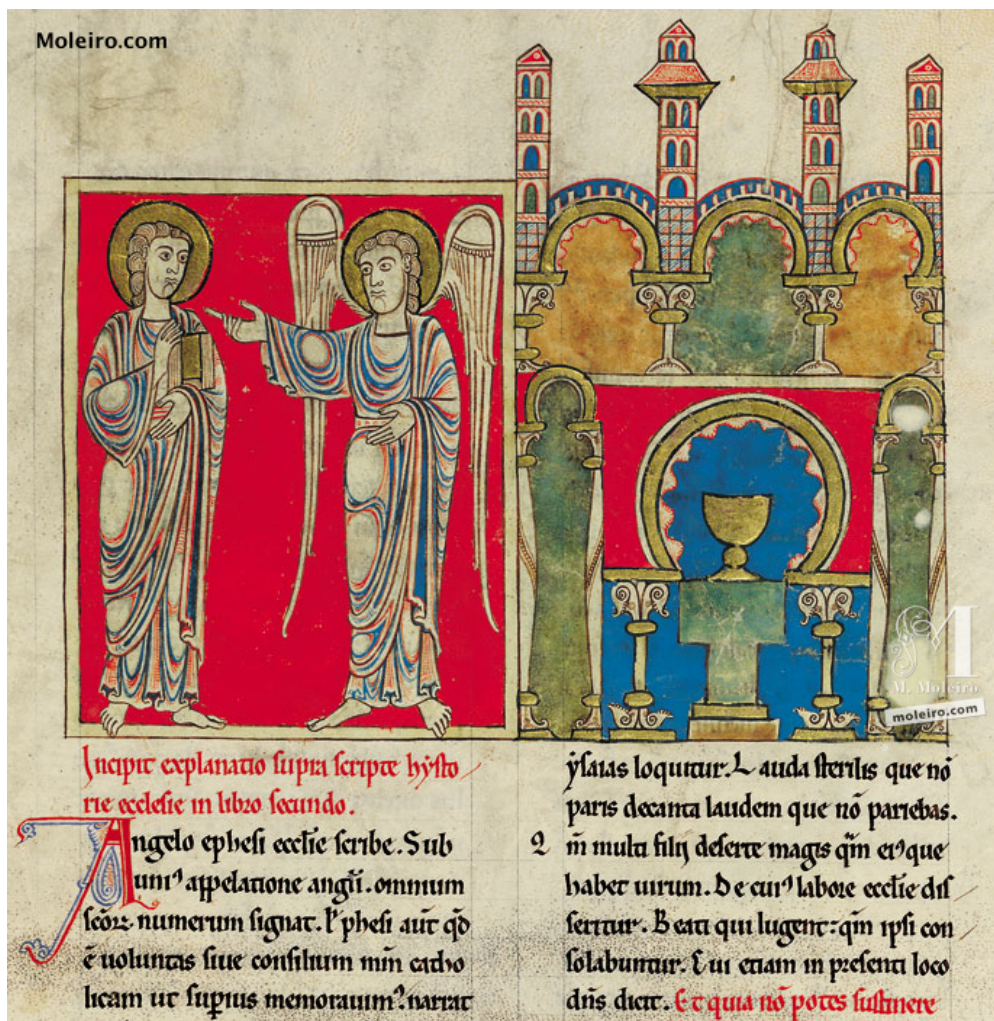 Moleiro.com
Incipit explanatio supra scripte hẏsto
rie ecclesie in libro secundo.
Angelo ephesi eccłie scribe. Sub
uniꝰ appelatione angłi. omnium
scōꝝ numerum signat. Ephesi aut̄ qd̄
ē uoluntas siue consilium mm̄ catho
licam ut supius memorauimꝰ. narrat
ẏsaias loquitur. Lauda sterilis que nō
paris decanta laudem que nō pariebas.
2 m̄ multi filij deserte magis qm̄ eiꝰ que
habet uirum. De cuiꝰ labore eccłie dis
seritur. Beati qui lugent: qm̄ ipsi con
solabuntur. Cui etiam in presenti loco
dn̄s dicit. Et quia nō potes sustinere
M
M. Moleiro
moleiro.com